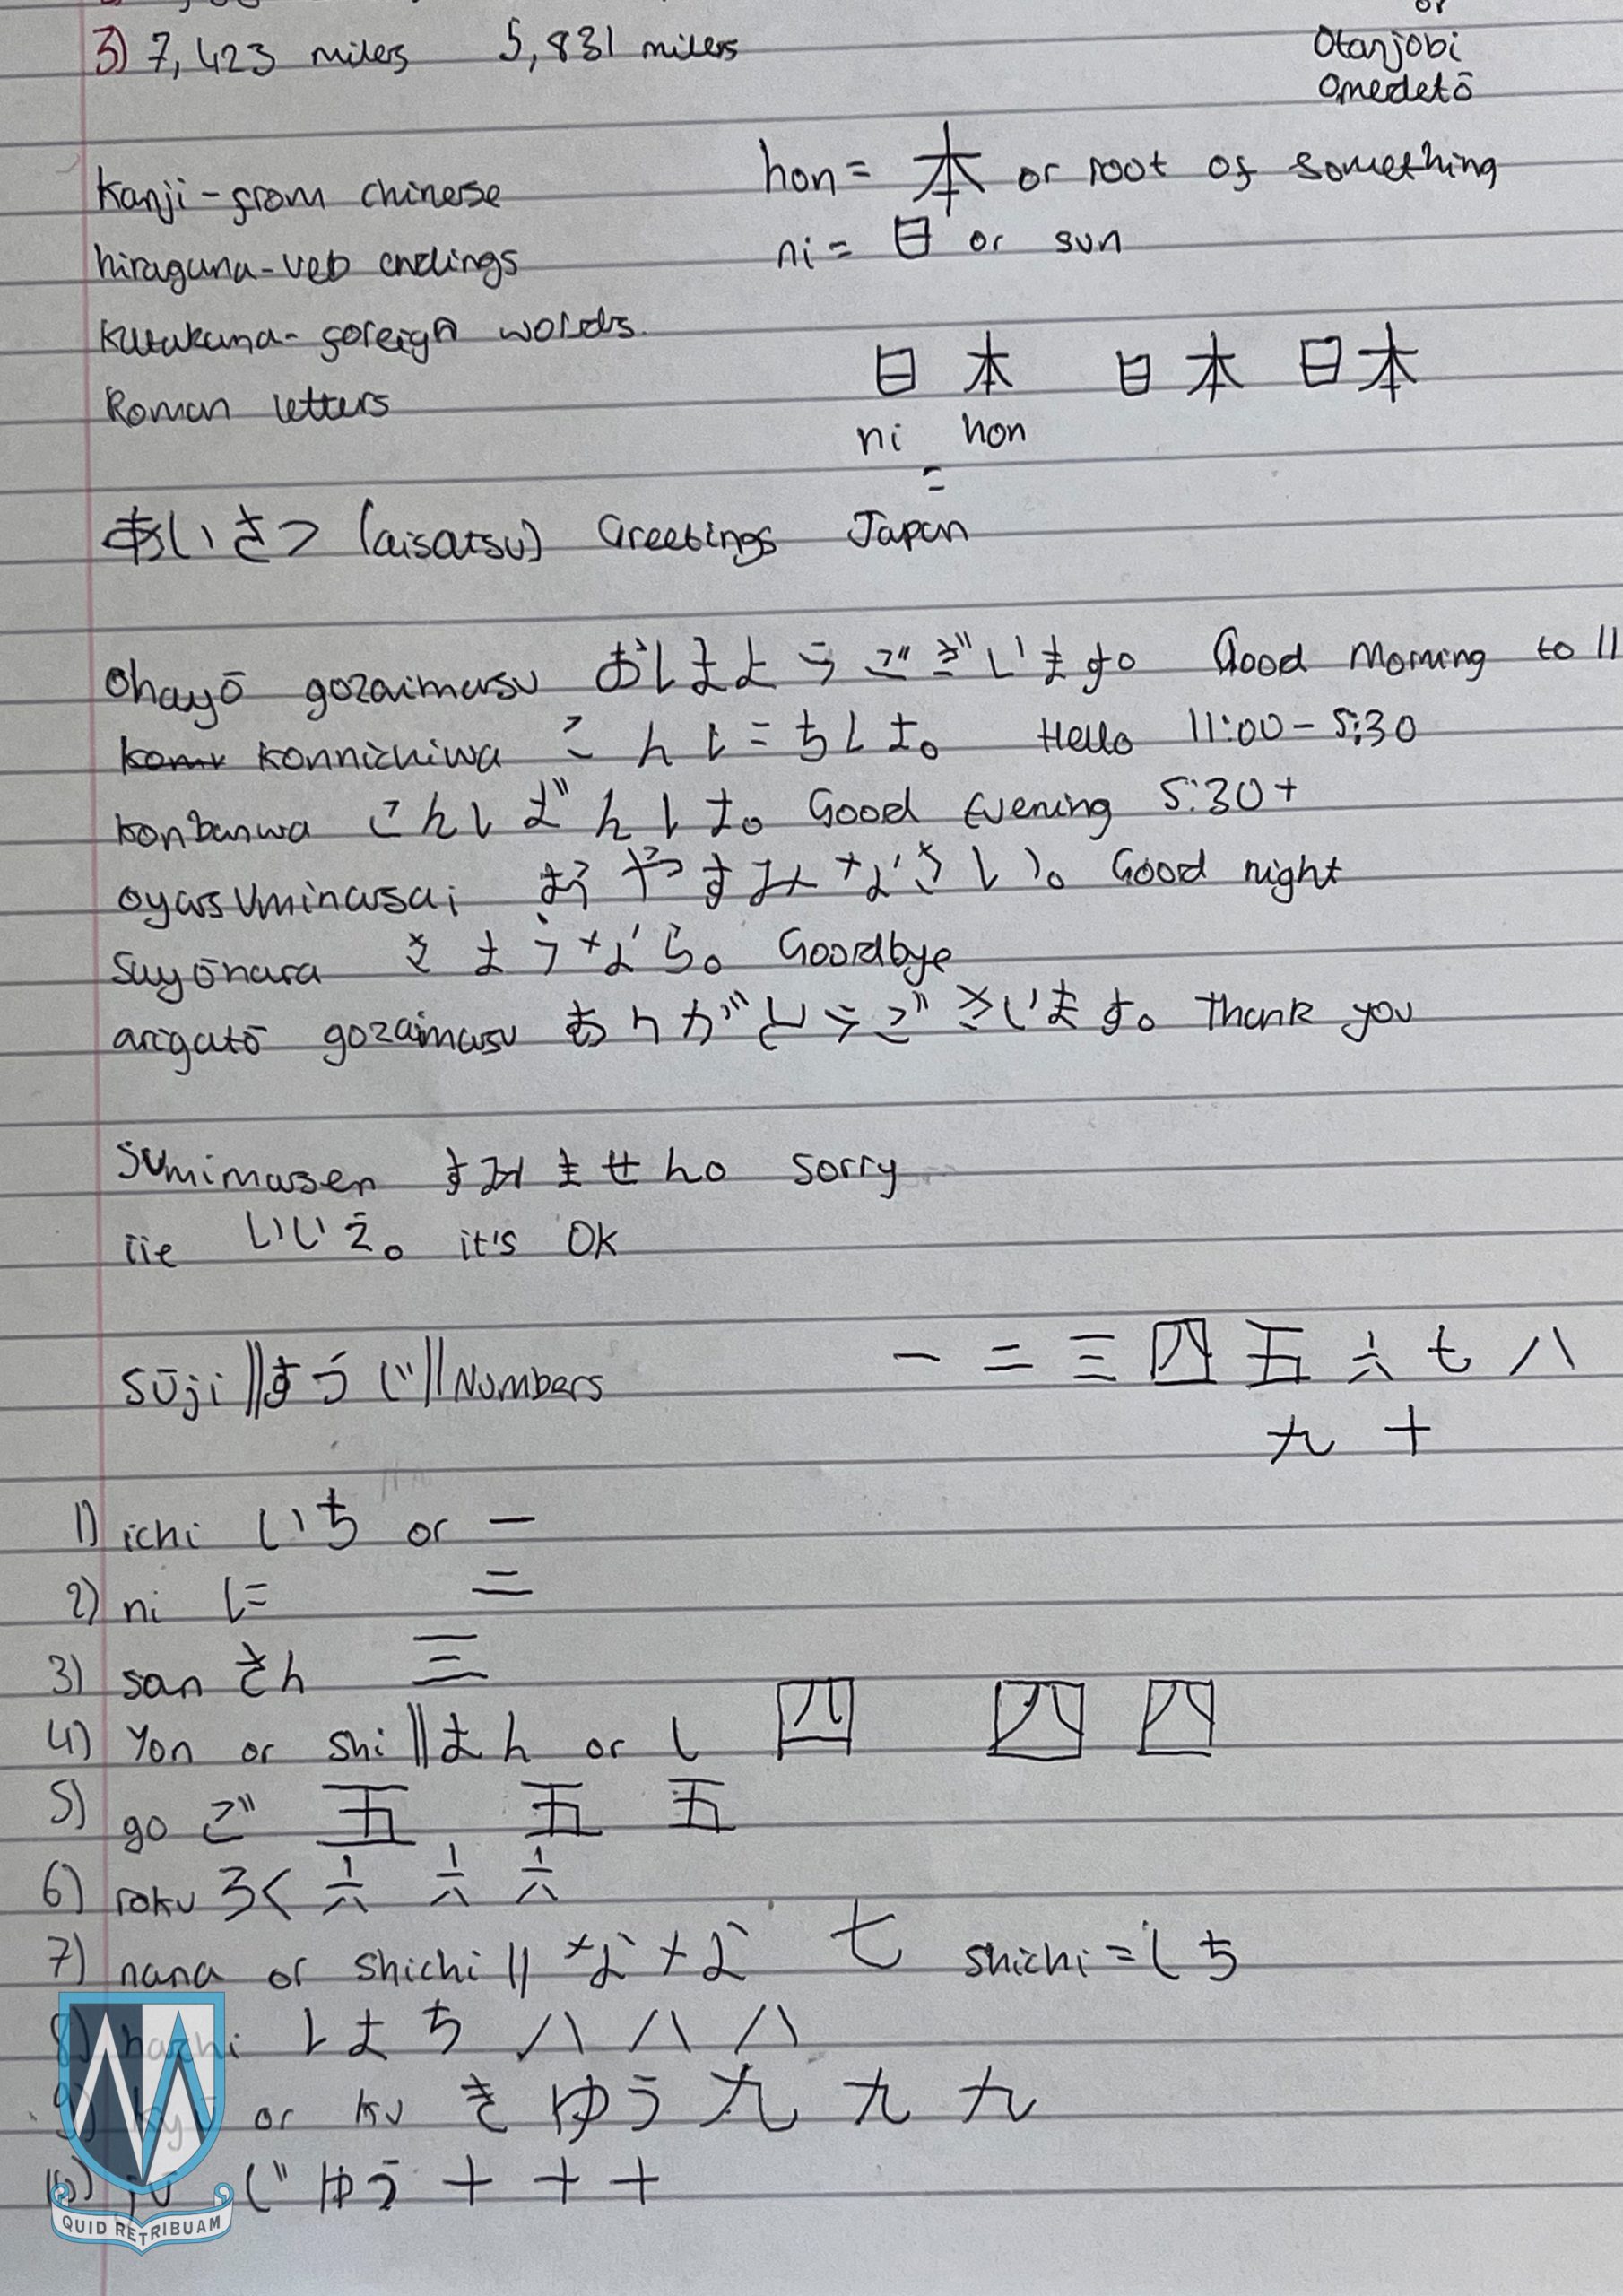 or
3) 7,423 miles 5,831 miles
Otanjobi
Omedetō
Kanji - from chinese
hon = 本 or root of something
hiragana - veb endings
ni = 日 or sun
Katakana - foreign words.
日本 日本 日本
Roman letters
ni hon
=
あいさつ (aisatsu) Greetings Japan
Ohayō gozaimasu おはようございます。 Good Morning to 11
konnichiwa こんにちは。 Hello 11:00 - 5:30
konbanwa こんばんは。 Good Evening 5:30+
oyasuminasai おやすみなさい。 Good night
Sayōnara さようなら。 Goodbye
arigatō gozaimasu ありがとうございます。 Thank you
Sumimasen すみません。 sorry
iie いいえ。 it's OK
Sūji || すうじ || Numbers 一 二 三 四 五 六 七 八
九 十
1) ichi いち or 一
2) ni に 二
3) san さん 三
4) Yon or shi || よん or し 四 四 四
5) go ご 五 五 五
6) roku ろく 六 六 六
7) nana or shichi || なな 七 shichi = しち
8) hachi はち 八 八 八
9) kyū or ku きゆう 九 九 九
10) jū じゆう 十 十 十
QUID RETRIBUAM